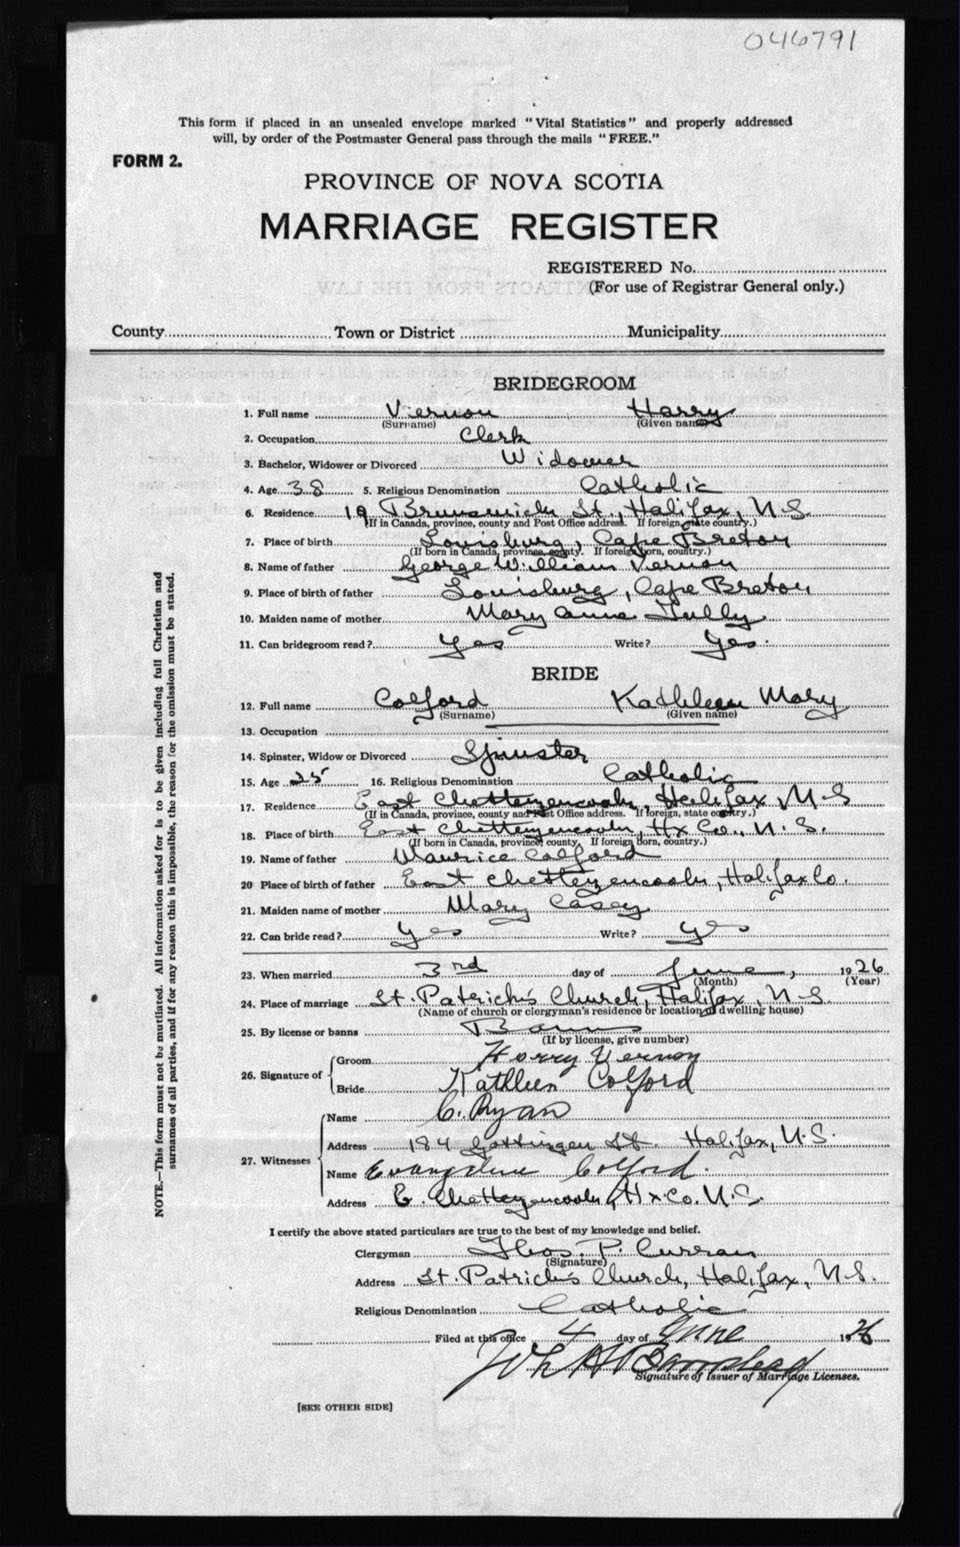 046791
This form if placed in an unsealed envelope marked "Vital Statistics" and properly addressed
will, by order of the Postmaster General pass through the mails "FREE."
FORM 2.
PROVINCE OF NOVA SCOTIA
MARRIAGE REGISTER
REGISTERED No.
(For use of Registrar General only.)
County Town or District Municipality
BRIDEGROOM
1. Full name Viernon Harry
(Surname) (Given name)
2. Occupation Clerk
3. Bachelor, Widower or Divorced Widower
4. Age 38 5. Religious Denomination Catholic
6. Residence 19 Brunswick St., Halifax, N.S.
(If in Canada, province, county and Post Office address. If foreign, state country.)
7. Place of birth Louisburg, Cape Breton
(If born in Canada, province, county. If foreign born, country.)
8. Name of father George William Vernon
9. Place of birth of father Louisburg, Cape Breton
10. Maiden name of mother Mary Anne Tully
11. Can bridegroom read? Yes Write? Yes
BRIDE
12. Full name Colford Kathleen Mary
(Surname) (Given name)
13. Occupation
14. Spinster, Widow or Divorced Spinster
15. Age 25 16. Religious Denomination Catholic
17. Residence East Chettezencook, Halifax, N.S
(If in Canada, province, county and Post Office address. If foreign, state country.)
18. Place of birth East Chettezencook, Hx Co., N.S.
(If born in Canada, province, county. If foreign born, country.)
19. Name of father Maurice Colford
20 Place of birth of father East Chettezencook, Halifax Co.
21. Maiden name of mother Mary Casey
22. Can bride read? Yes Write? Yes
23. When married 3rd day of June, 1926
(Month) (Year)
24. Place of marriage St. Patrick's Church, Halifax, N.S.
(Name of church or clergyman's residence or location of dwelling house)
25. By license or banns Banns
(If by license, give number)
26. Signature of Groom Harry Vernon
Bride Kathleen Colford
27. Witnesses Name C. Ryan
Address 184 Gottingen St. Halifax, N.S.
Name Evangeline Colford.
Address E. Chettezencook, Hx Co. N.S.
I certify the above stated particulars are true to the best of my knowledge and belief.
Clergyman Thos. P. Curran
(Signature)
Address St. Patrick's Church, Halifax, N.S.
Religious Denomination Catholic
Filed at this office 4 day of June 1926
Signature of Issuer of Marriage Licenses.
[SEE OTHER SIDE]
NOTE.—This form must not be mutilated. All information asked for is to be given including full Christian and
surnames of all parties, and if for any reason this is impossible, the reason for the omission must be stated.